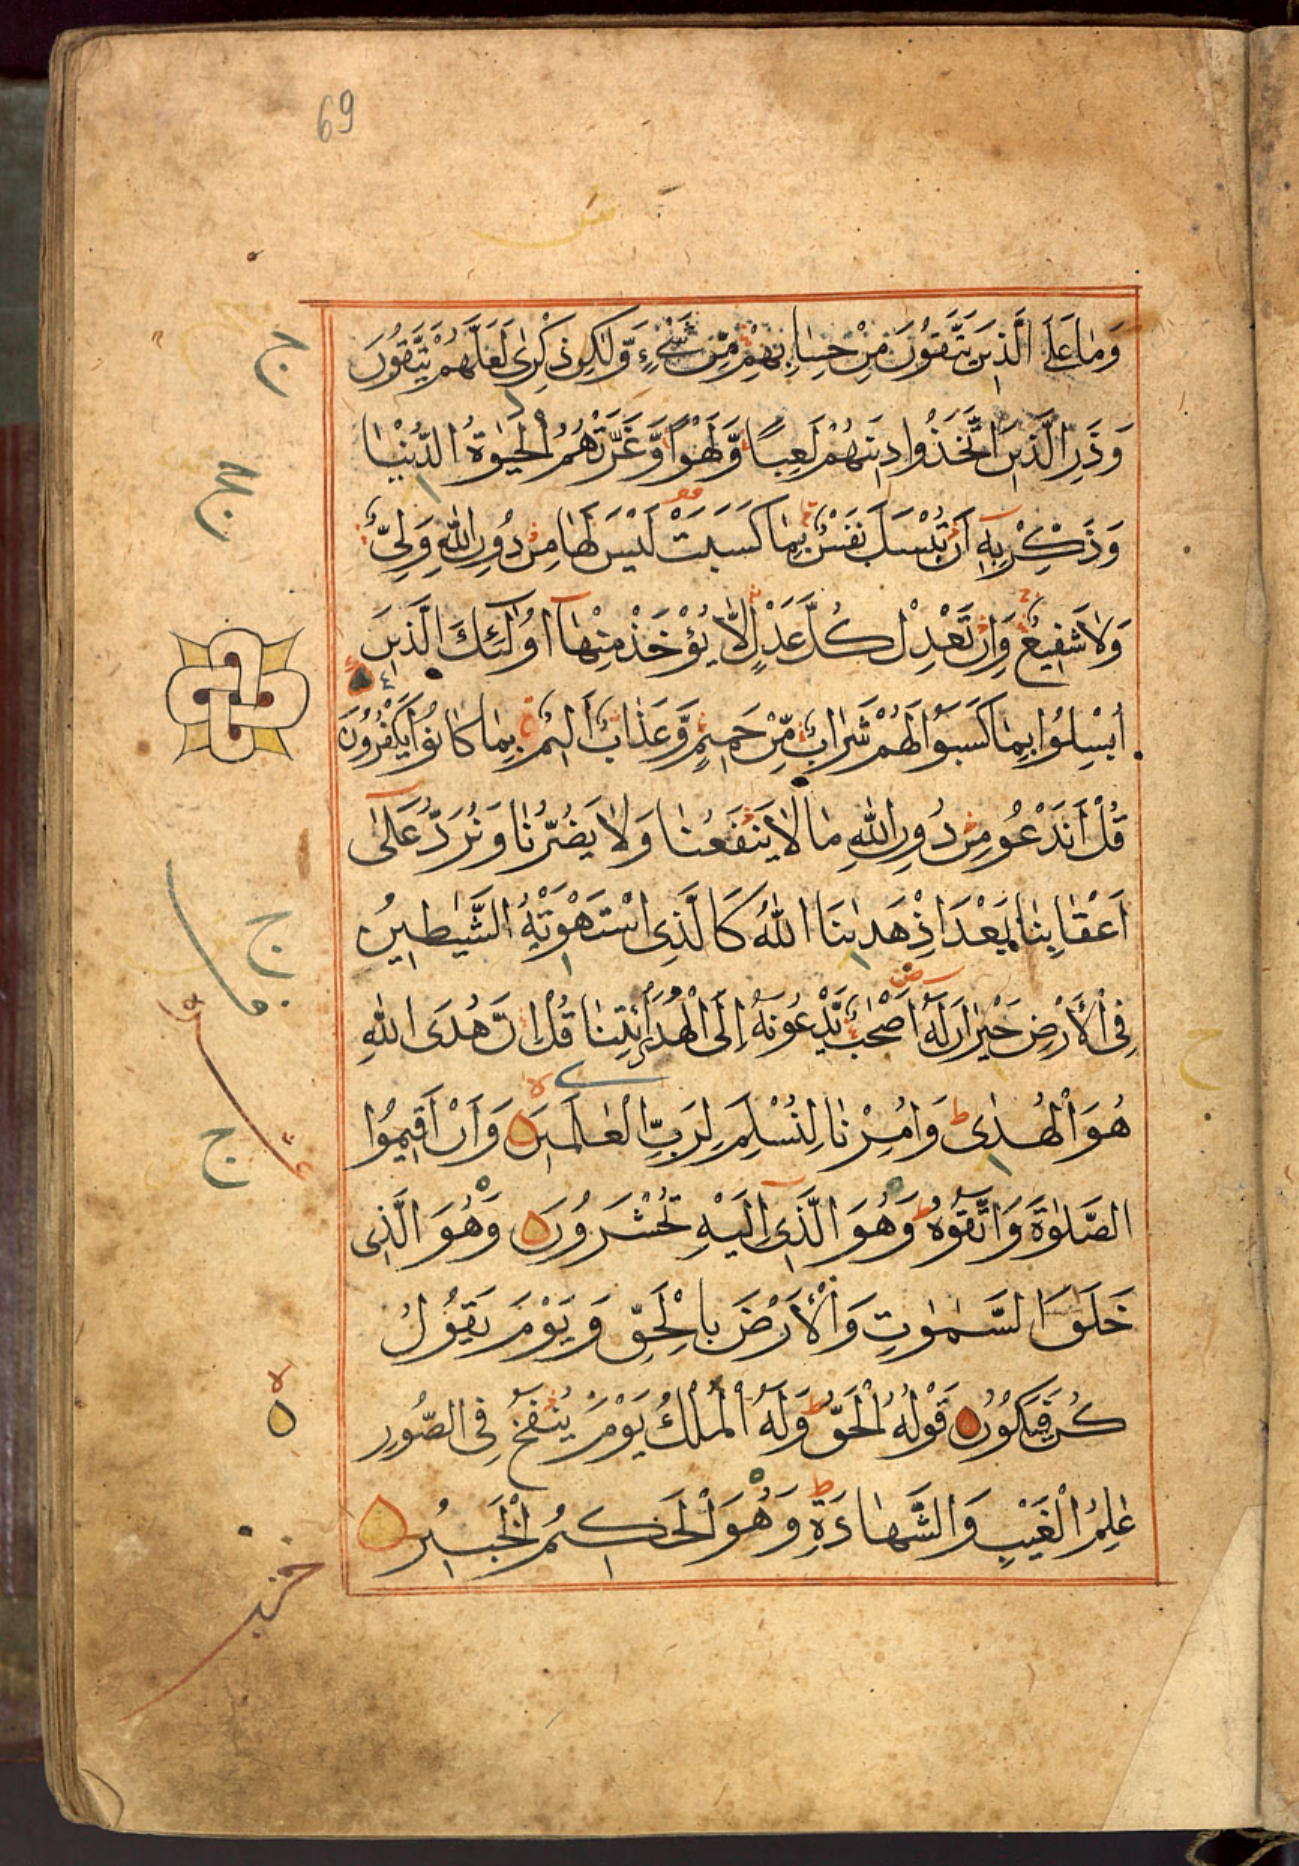 69
وَمَا عَلَى الَّذِينَ يَتَّقُونَ مِنْ حِسَابِهِمْ مِّنْ شَيْءٍ وَّلٰكِنْ ذِكْرٰى لَعَلَّهُمْ يَتَّقُونَ
وَذَرِ الَّذِينَ اتَّخَذُوا دِينَهُمْ لَعِبًا وَّلَهْوًا وَّغَرَّتْهُمُ الْحَيٰوةُ الدُّنْيَا
وَذَكِّرْ بِهٖ اَنْ تُبْسَلَ نَفْسٌ بِمَا كَسَبَتْ لَيْسَ لَهَا مِنْ دُونِ اللّٰهِ وَلِيٌّ
وَلَا شَفِيعٌ وَاِنْ تَعْدِلْ كُلَّ عَدْلٍ لَّا يُؤْخَذْ مِنْهَا اُولٰئِكَ الَّذِينَ
اُبْسِلُوا بِمَا كَسَبُوا لَهُمْ شَرَابٌ مِّنْ حَمِيمٍ وَّعَذَابٌ اَلِيمٌ بِمَا كَانُوا يَكْفُرُونَ
قُلْ اَنَدْعُو مِنْ دُونِ اللّٰهِ مَا لَا يَنْفَعُنَا وَلَا يَضُرُّنَا وَنُرَدُّ عَلٰى
اَعْقَابِنَا بَعْدَ اِذْ هَدٰىنَا اللّٰهُ كَالَّذِى اسْتَهْوَتْهُ الشَّيٰطِينُ
فِى الْاَرْضِ حَيْرَانَ لَهٗ اَصْحٰبٌ يَّدْعُونَهٗ اِلَى الْهُدَى ائْتِنَا قُلْ اِنَّ هُدَى اللّٰهِ
هُوَ الْهُدٰى وَاُمِرْنَا لِنُسْلِمَ لِرَبِّ الْعٰلَمِينَ وَاَنْ اَقِيمُوا
الصَّلٰوةَ وَاتَّقُوهُ وَهُوَ الَّذِى اِلَيْهِ تُحْشَرُونَ وَهُوَ الَّذِى
خَلَقَ السَّمٰوٰتِ وَالْاَرْضَ بِالْحَقِّ وَيَوْمَ يَقُولُ
كُنْ فَيَكُونُ قَوْلُهُ الْحَقُّ وَلَهُ الْمُلْكُ يَوْمَ يُنْفَخُ فِى الصُّورِ
عٰلِمُ الْغَيْبِ وَالشَّهَادَةِ وَهُوَ الْحَكِيمُ الْخَبِيرُ